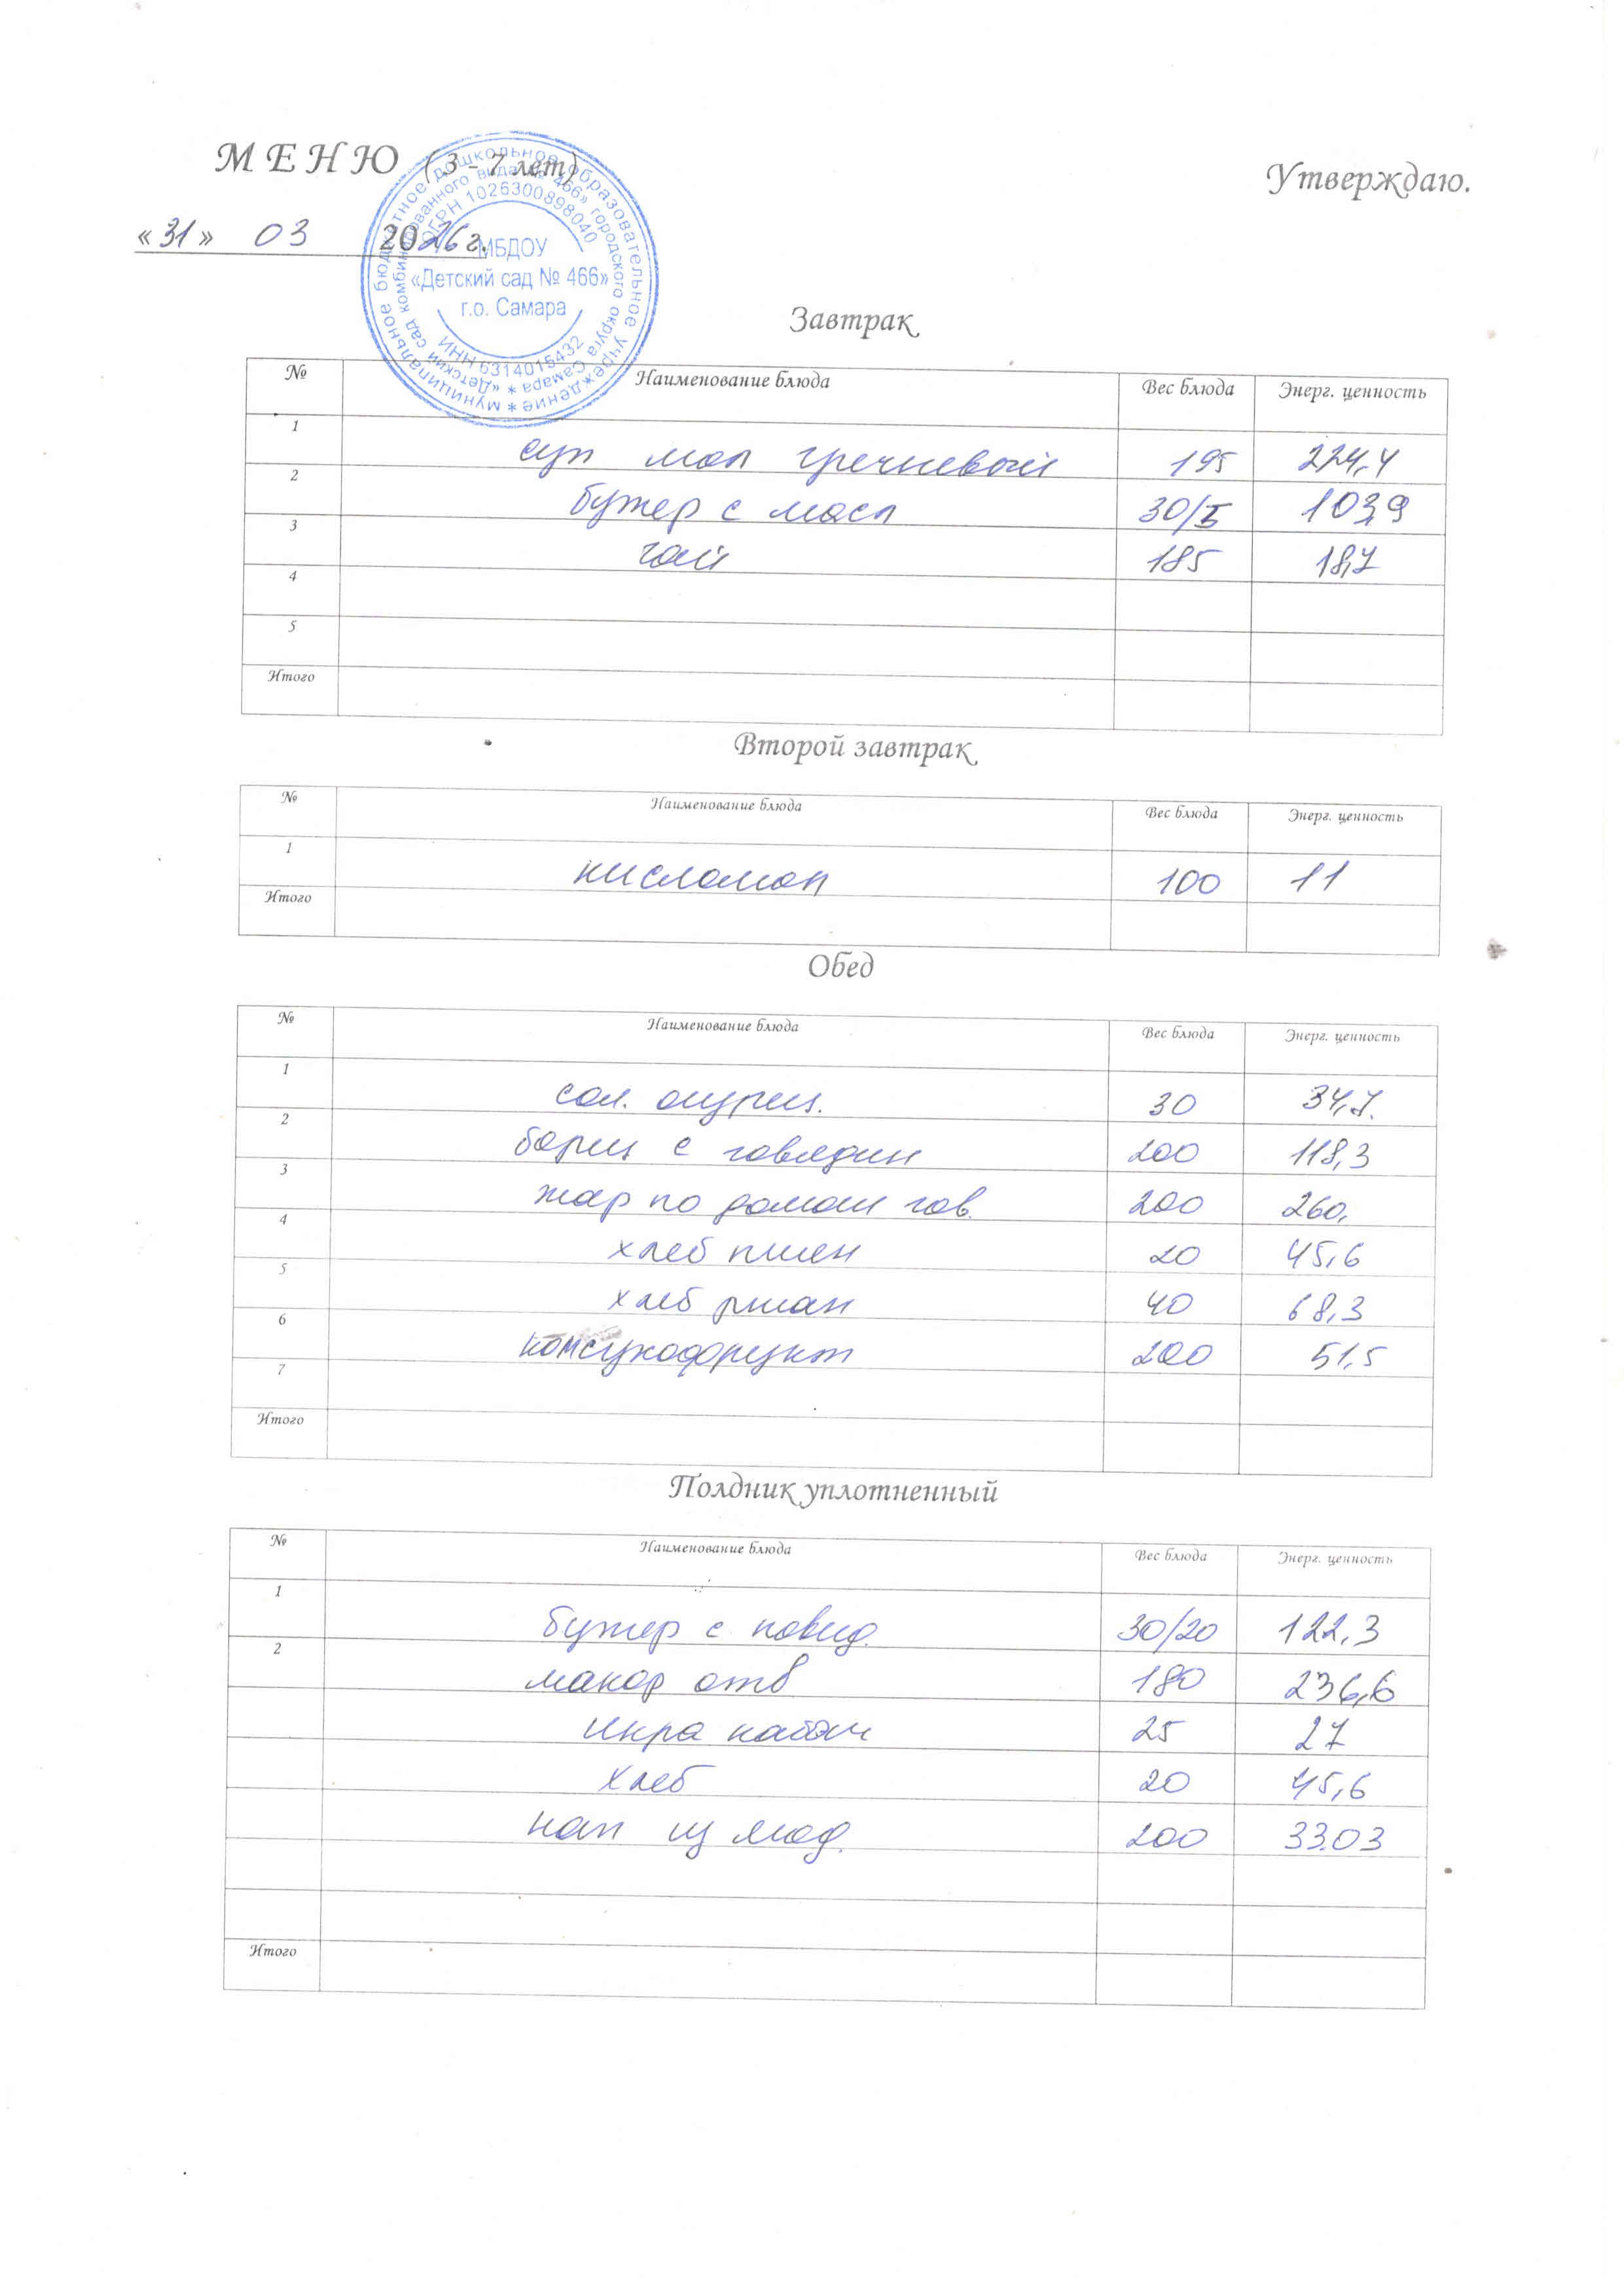 МЕНЮ (3 - 7 лет)
Утверждаю.
«31» 03 2026г.
муниципальное бюджетное дошкольное образовательное учреждение
«Детский сад комбинированного вида № 466» городского округа Самара
ОГРН 1026300898040
МБДОУ
«Детский сад № 466»
г.о. Самара
ИНН 6314015432
Завтрак
№ Наименование блюда Вес блюда Энерг. ценность
1 суп мол гречневый 195 224,4
2 бутер с масл 30/5 103,9
3 чай 185 18,7
4
5
Итого
Второй завтрак
№ Наименование блюда Вес блюда Энерг. ценность
1 кисломол 100 11
Итого
Обед
№ Наименование блюда Вес блюда Энерг. ценность
1 сол. огурец. 30 34,7.
2 борщ с говядин 200 118,3
3 жар по домаш гов. 200 260,
4 хлеб пшен 20 45,6
5 хлеб ржан 40 68,3
6 компсухофрукт 200 51,5
7
Итого
Полдник уплотненный
№ Наименование блюда Вес блюда Энерг. ценность
1 бутер с повид. 30/20 122,3
2 макар отв 180 236,6
икра кабач 25 27
хлеб 20 45,6
нап из 200 33.03
Итого